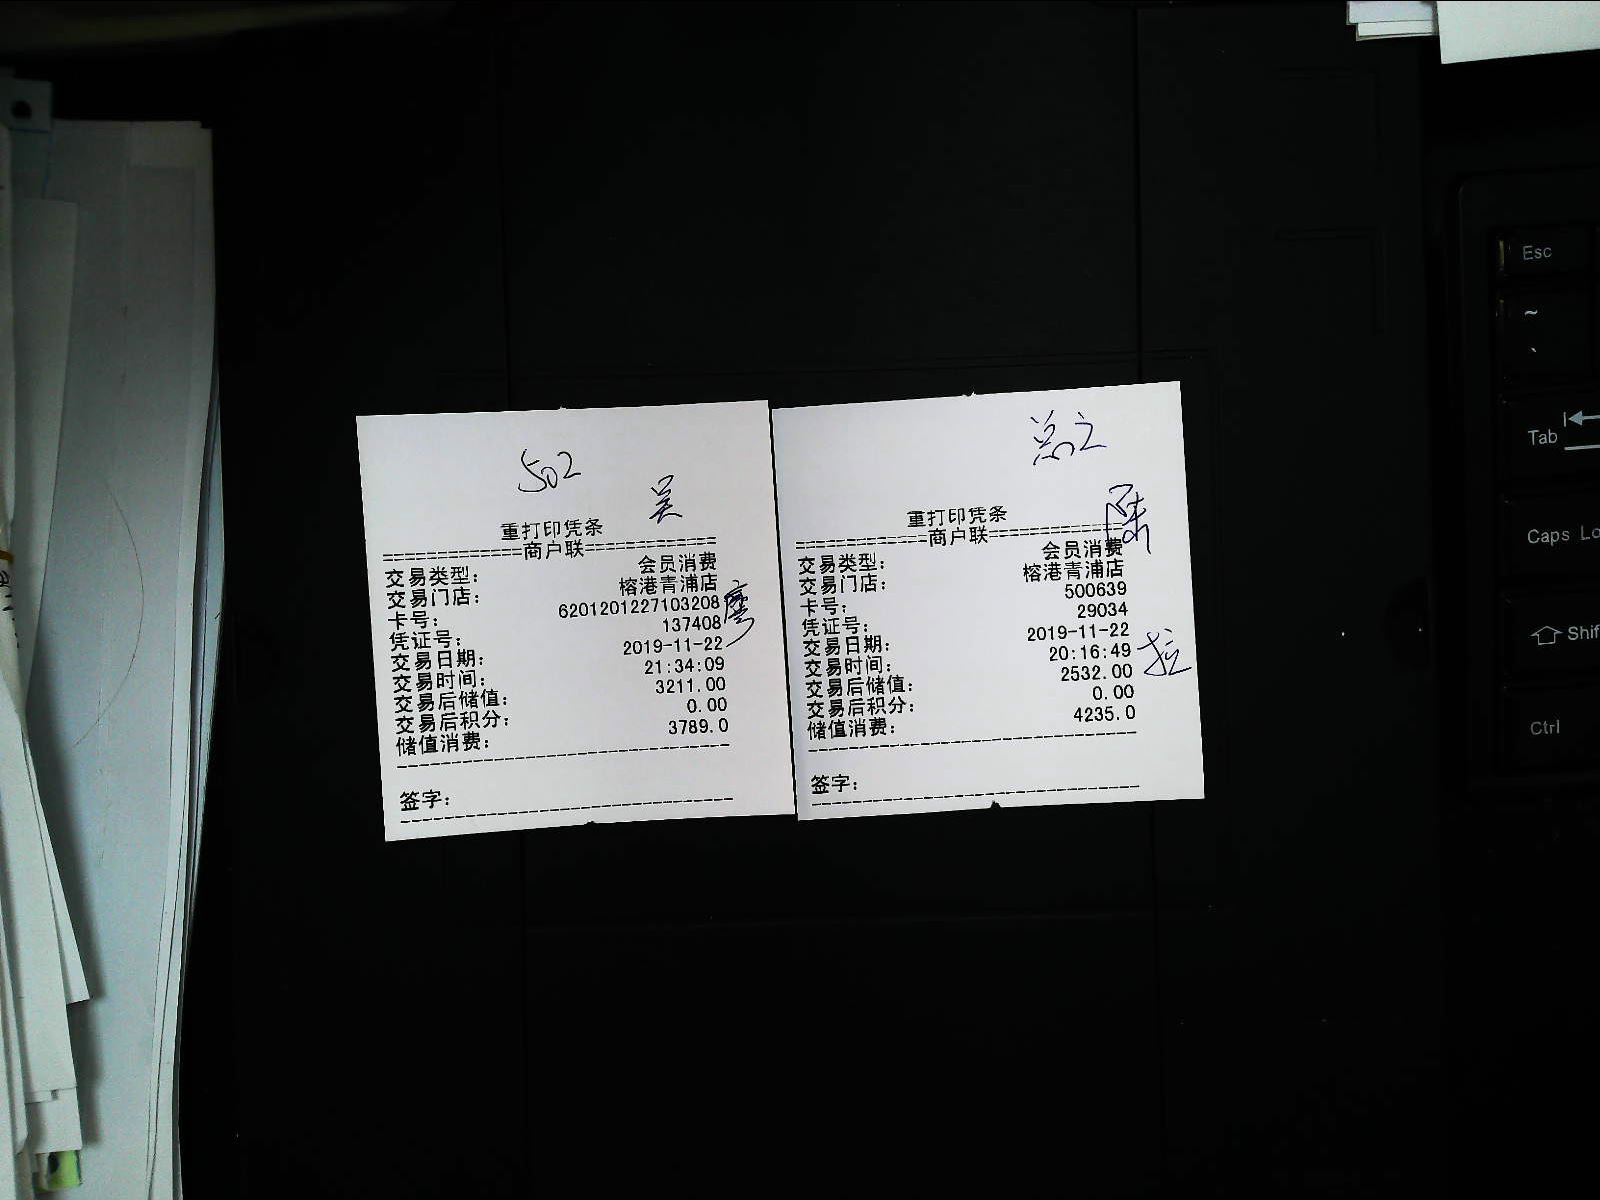 502
吴
重打印凭条
=============商户联=============
交易类型: 会员消费
交易门店: 榕港青浦店
卡号: 6201201227103208
凭证号: 137408
交易日期: 2019-11-22
交易时间: 21:34:09
交易后储值: 3211.00
交易后积分: 0.00
储值消费: 3789.0
签字:
重打印凭条
=============商户联=============
交易类型: 会员消费
交易门店: 榕港青浦店
卡号: 500639
凭证号: 29034
交易日期: 2019-11-22
交易时间: 20:16:49
交易后储值: 2532.00
交易后积分: 0.00
储值消费: 4235.0
签字:
Esc
~
`
Tab
Caps Lo
Shif
Ctrl